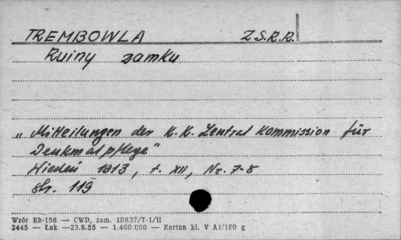 TREMBOWLA Z.S.R.R.
Ruiny zamku
„Mitteilungen der K.K. Zentral Kommission für
Denkmalpflege"
Wiedeń 1913, t. XII, Nr. 7-8
str. 119
Wzór Kb-156 — CWD, zam. 10837/T-I/II
2445 — Łak —23.8.55 — 1.400.000 — Karton kl. V A1/180 g